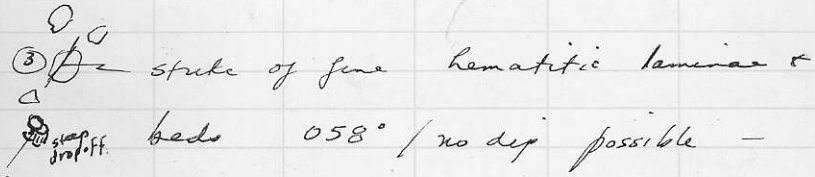 ③ strike of fine hematitic laminae &
step drop off. beds 058° / no dip possible —